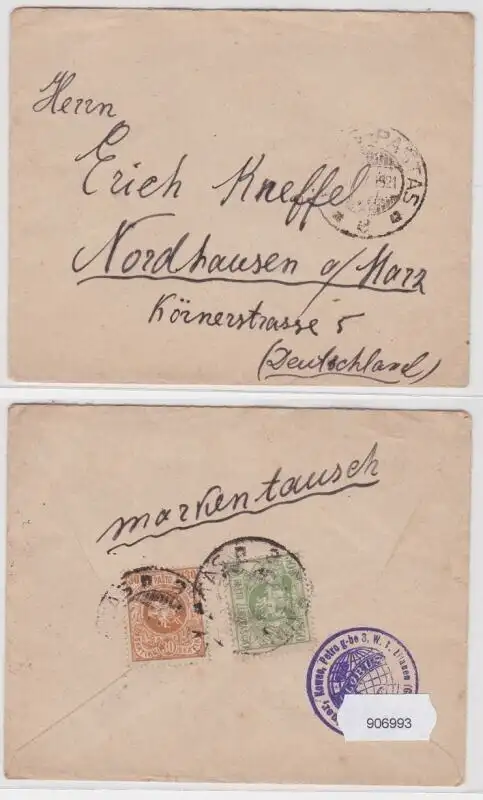 Herrn
Erich Kneffel
Nordhausen a/Harz
Körnerstrasse 5
(Deutschland)
PASTAS
1921
markentausch
30
PAŠTO
30
Kowno, Petro g-be 3, W. 1, Litauen
GLOBUS
906993